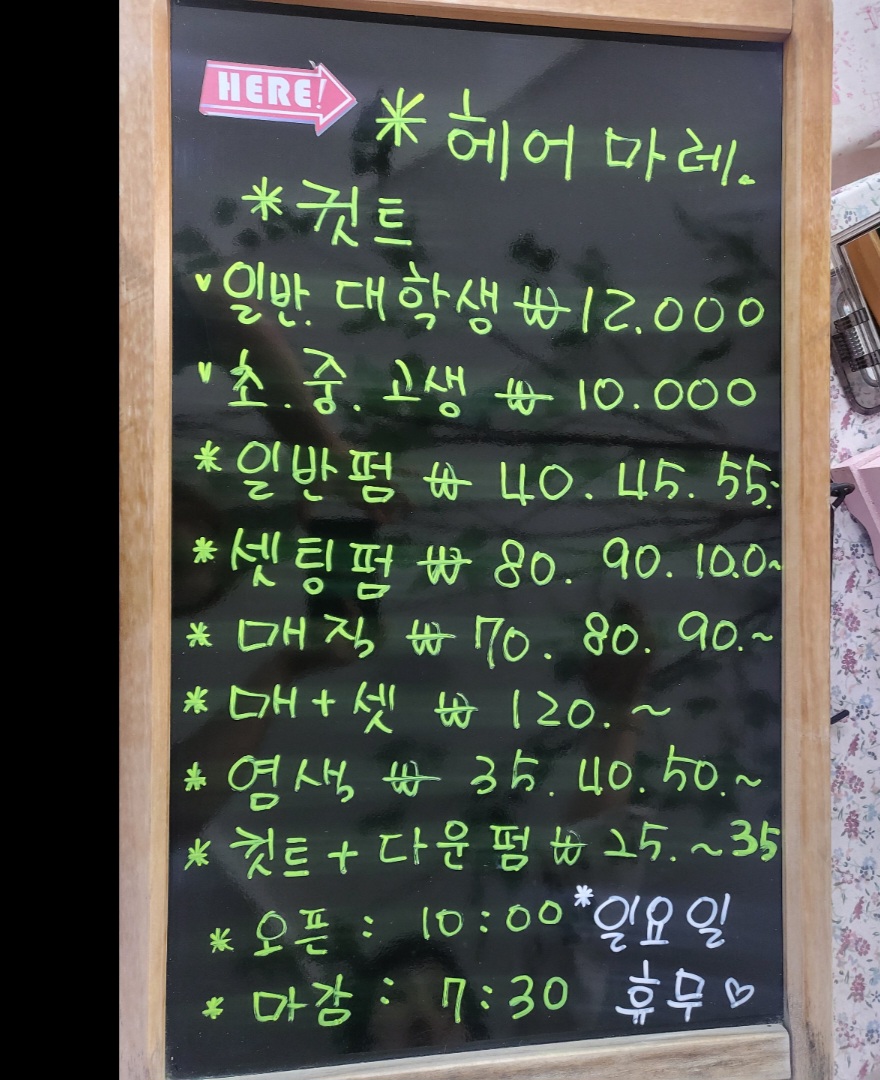 HERE!
* 헤어 마레.
* 컷트
v 일반. 대학생 ₩12.000
v 초. 중. 고생 ₩ 10.000
* 일반펌 ₩ 40. 45. 55.
* 셋팅펌 ₩ 80. 90. 100~
* 매직 ₩ 70. 80. 90.~
* 매+셋 ₩ 120. ~
* 염색 ₩ 35. 40. 50.~
* 컷트+다운펌 ₩ 25. ~35
* 오픈: 10:00 *일요일
* 마감: 7:30 휴무♡